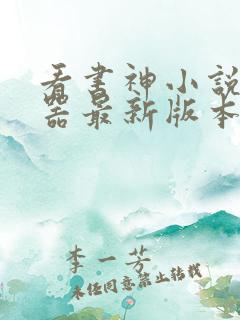 看书神小说
器最新版本
李一芳
未经同意禁止转载